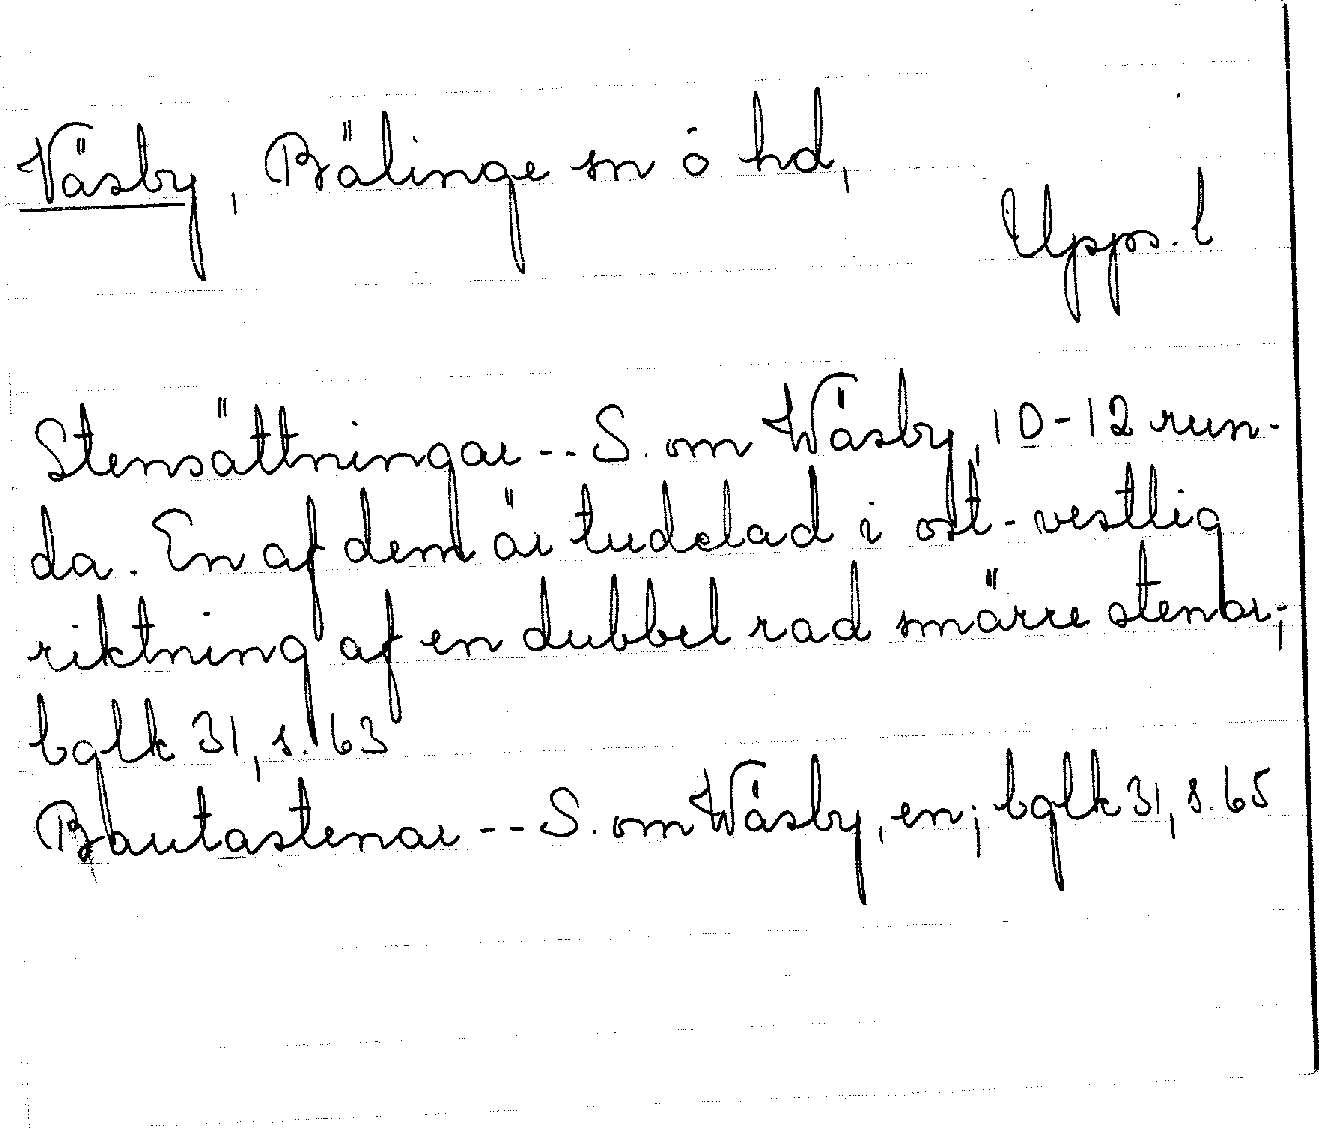 Väsby, Bälinge sn o hd,
Upps. l
Stensättningar -- S. om Wäsby, 10-12 run-
da. En af dem är tudelad i ost-vestlig
riktning af en dubbel rad smärre stenar;
bglk 31, s. 63
Bautastenar -- S. om Wäsby, en; bglk 31, s. 65